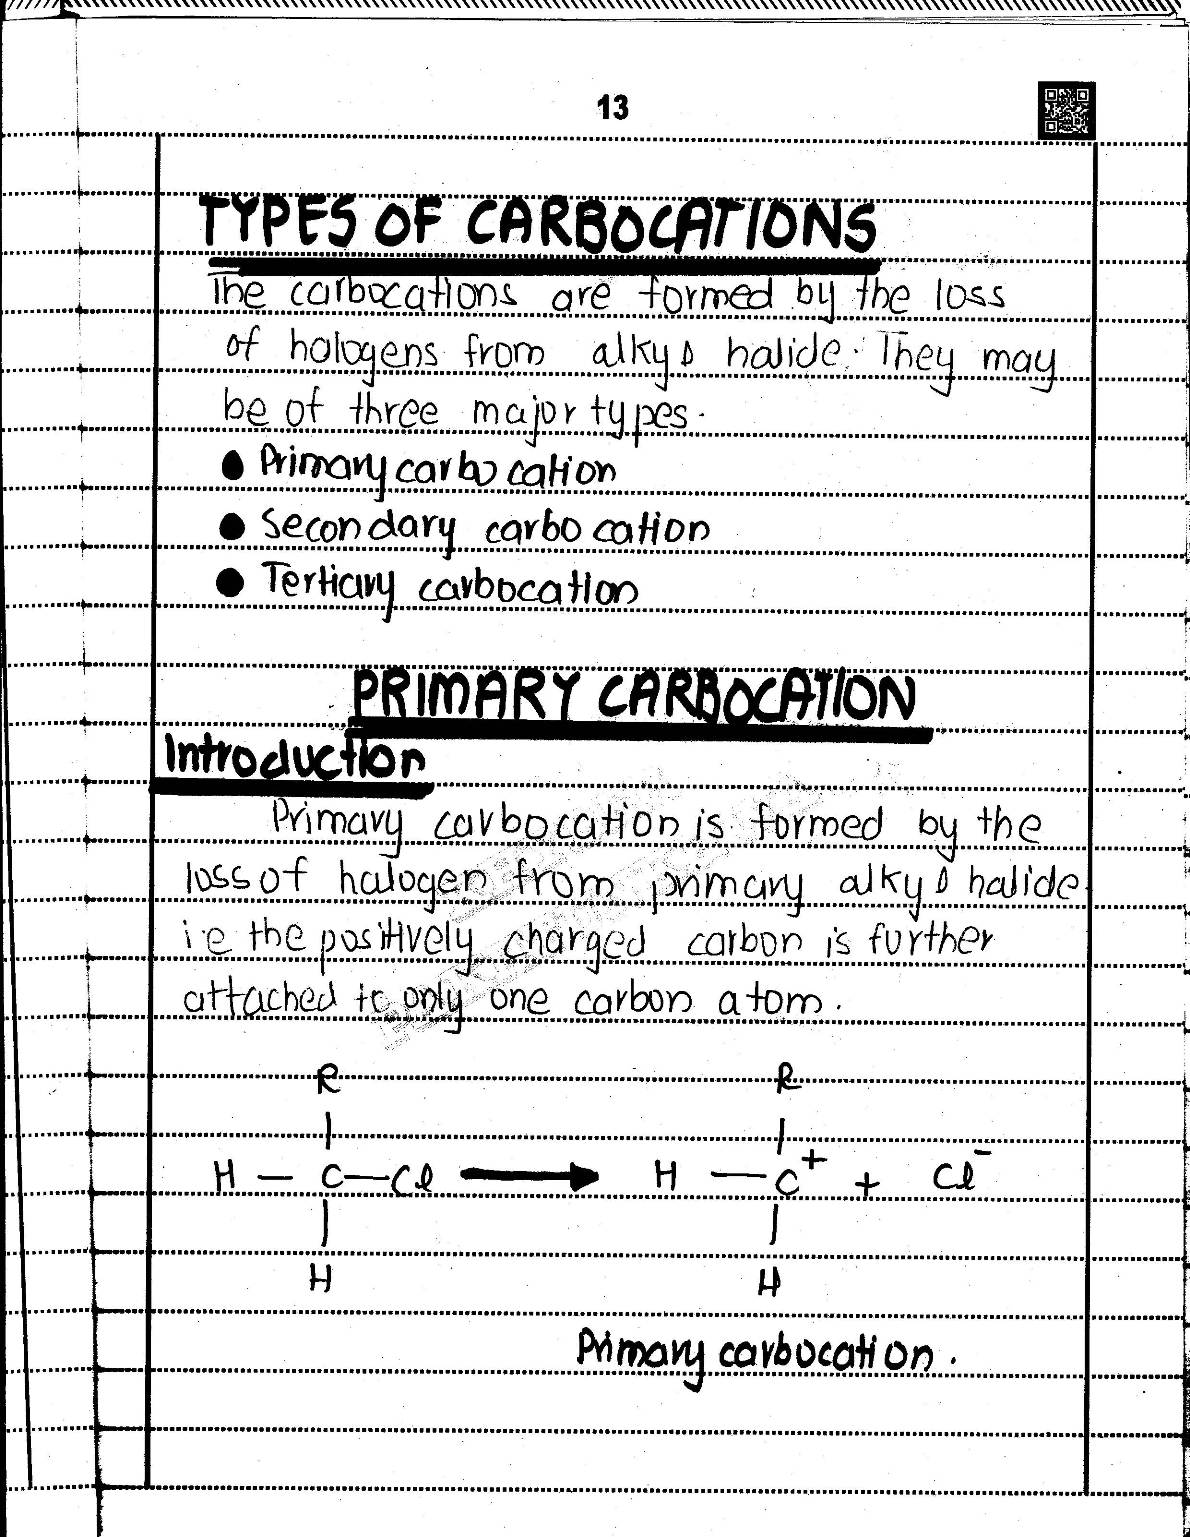 13
TYPES OF CARBOCATIONS
The carbocations are formed by the loss
of halogens from alkyl halide. They may
be of three major types.
● Primary carbocation
● Secondary carbocation
● Tertiary carbocation
PRIMARY CARBOCATION
Introduction
Primary carbocation is formed by the
loss of halogen from primary alkyl halide
i.e the positively charged carbon is further
attached to only one carbon atom.
R R
| |
H — C — Cl ⟶ H — C⁺ + Cl⁻
| |
H H
Primary carbocation.